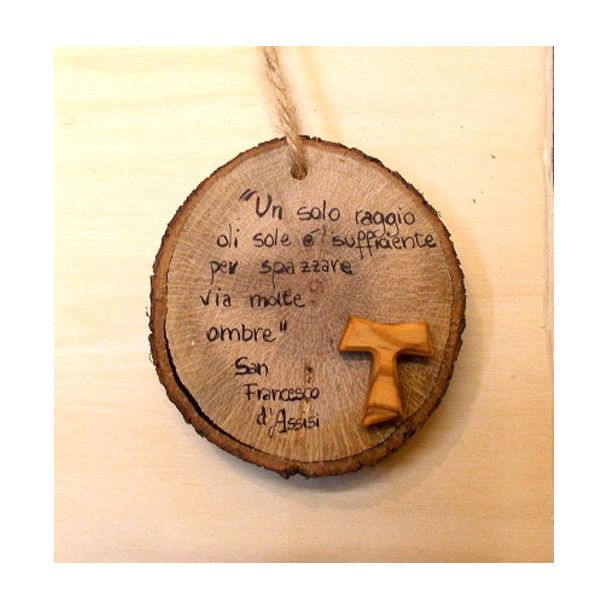 "Un solo raggio
di sole é sufficiente
per spazzare
via molte
ombre"
San
Francesco
d'Assisi